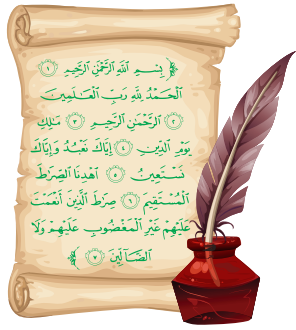 ﴿بِسْمِ ٱللَّهِ ٱلرَّحْمَٰنِ ٱلرَّحِيمِ ۝١
ٱلْحَمْدُ لِلَّهِ رَبِّ ٱلْعَٰلَمِينَ
۝٢ ٱلرَّحْمَٰنِ ٱلرَّحِيمِ ۝٣ مَٰلِكِ
يَوْمِ ٱلدِّينِ ۝٤ إِيَّاكَ نَعْبُدُ وَإِيَّاكَ
نَسْتَعِينُ ۝٥ ٱهْدِنَا ٱلصِّرَٰطَ
ٱلْمُسْتَقِيمَ ۝٦ صِرَٰطَ ٱلَّذِينَ أَنْعَمْتَ
عَلَيْهِمْ غَيْرِ ٱلْمَغْضُوبِ عَلَيْهِمْ وَلَا
ٱلضَّآلِّينَ ۝٧﴾